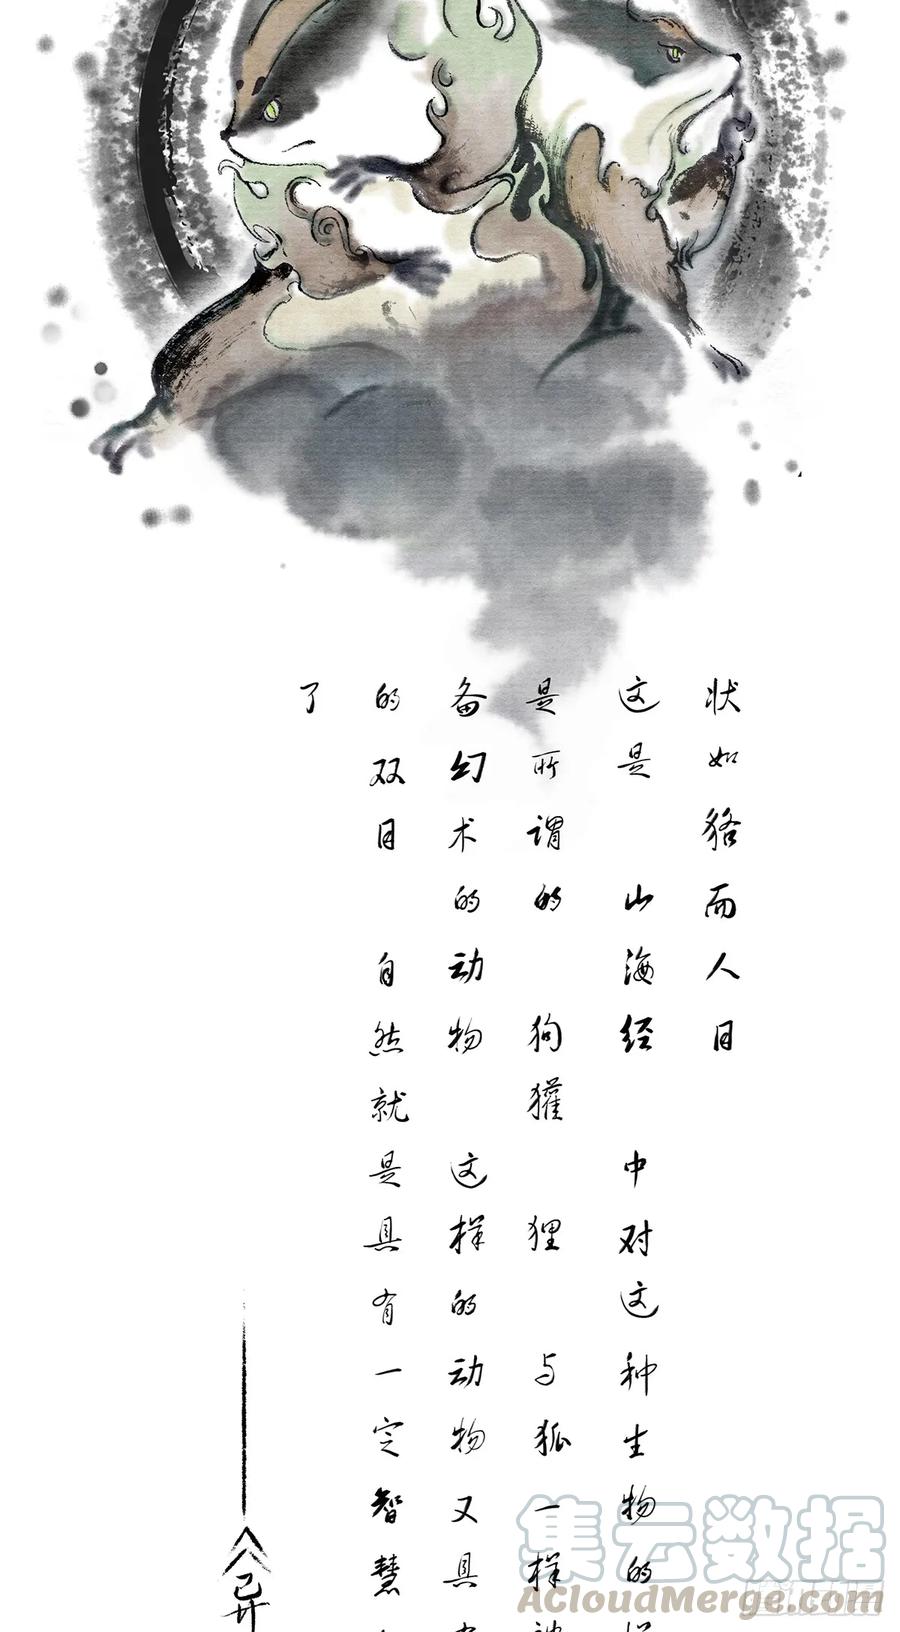 状如狢而人目
这是 山海经 中对这种生物的
是所谓的 狗獾 狸 与狐一样
备幻术的动物 这样的动物又具
的双目 自然就是具有一定智慧
了
——《异
集云数据
ACloudMerge.com